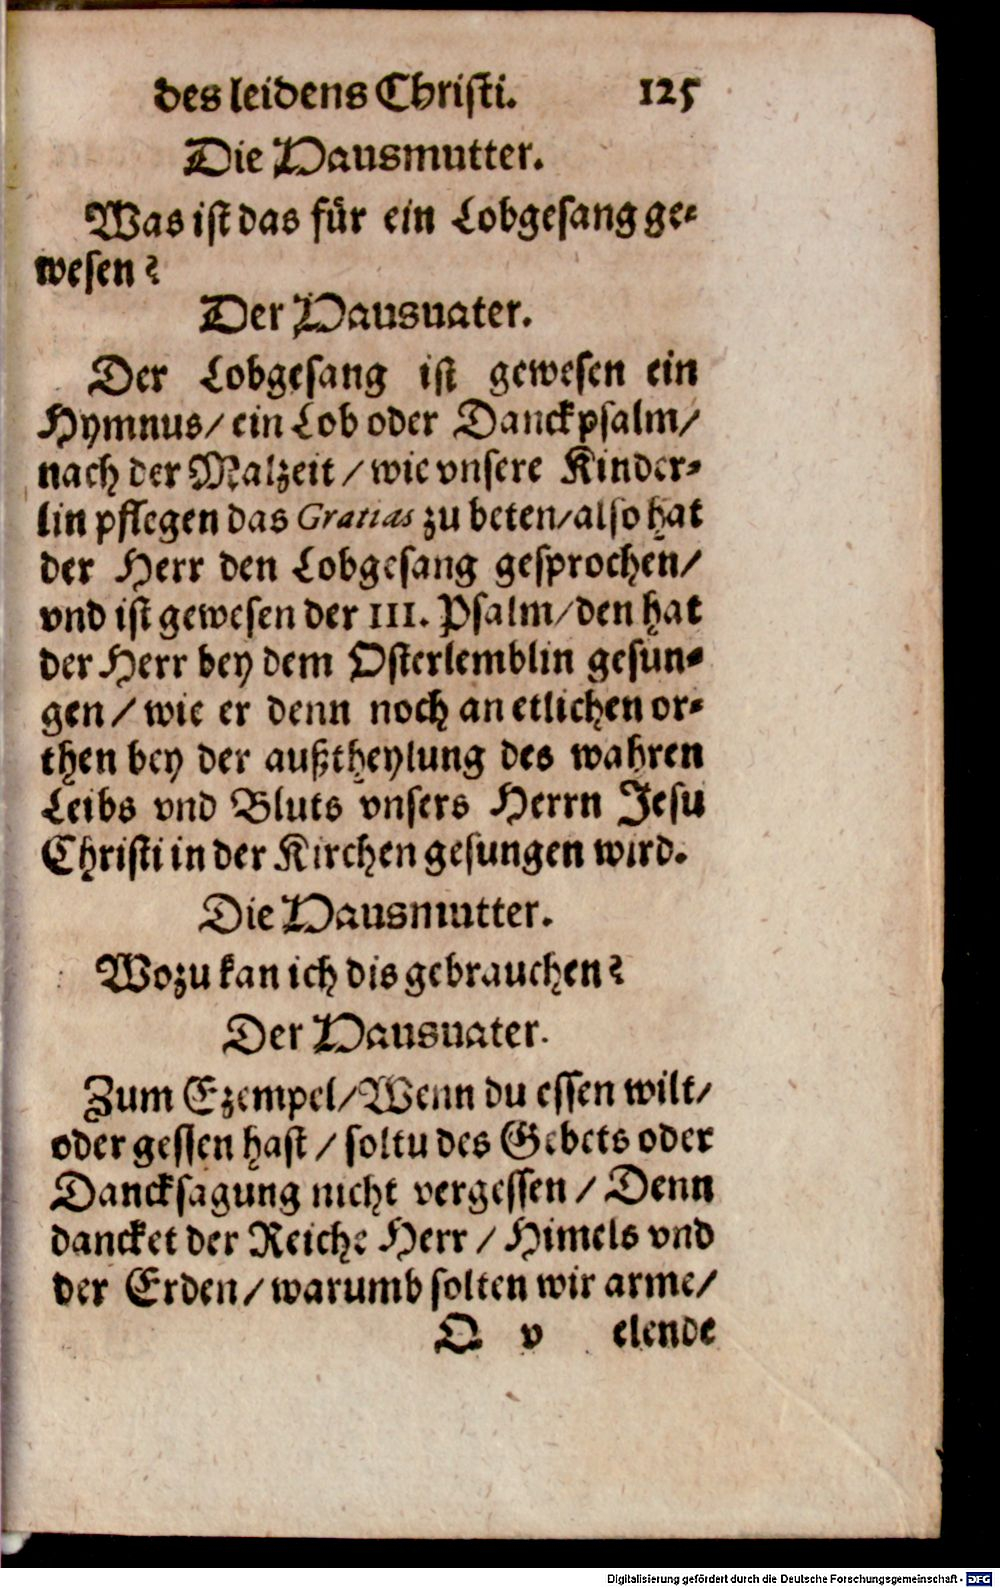 des leidens Christi. 125
Die Hausmutter.
Was ist das für ein Lobgesang ge-
wesen?
Der Hausuater.
Der Lobgesang ist gewesen ein
Hymnus/ ein Lob oder Danckpsalm/
nach der Malzeit / wie vnsere Kinder-
lin pflegen das Gratias zu beten/ also hat
der Herr den Lobgesang gesprochen/
vnd ist gewesen der 111. Psalm/ den hat
der Herr bey dem Osterlemblin gesun-
gen / wie er denn noch an etlichen or-
then bey der außtheylung des wahren
Leibs vnd Bluts vnsers Herrn Jesu
Christi in der Kirchen gesungen wird.
Die Hausmutter.
Wozu kan ich dis gebrauchen?
Der Hausuater.
Zum Exempel/ Wenn du essen wilt/
oder gessen hast / soltu des Gebets oder
Dancksagung nicht vergessen / Denn
dancket der Reiche Herr / Himels vnd
der Erden / warumb solten wir arme/
Q v elende
Digitalisierung gefördert durch die Deutsche Forschungsgemeinschaft - DFG